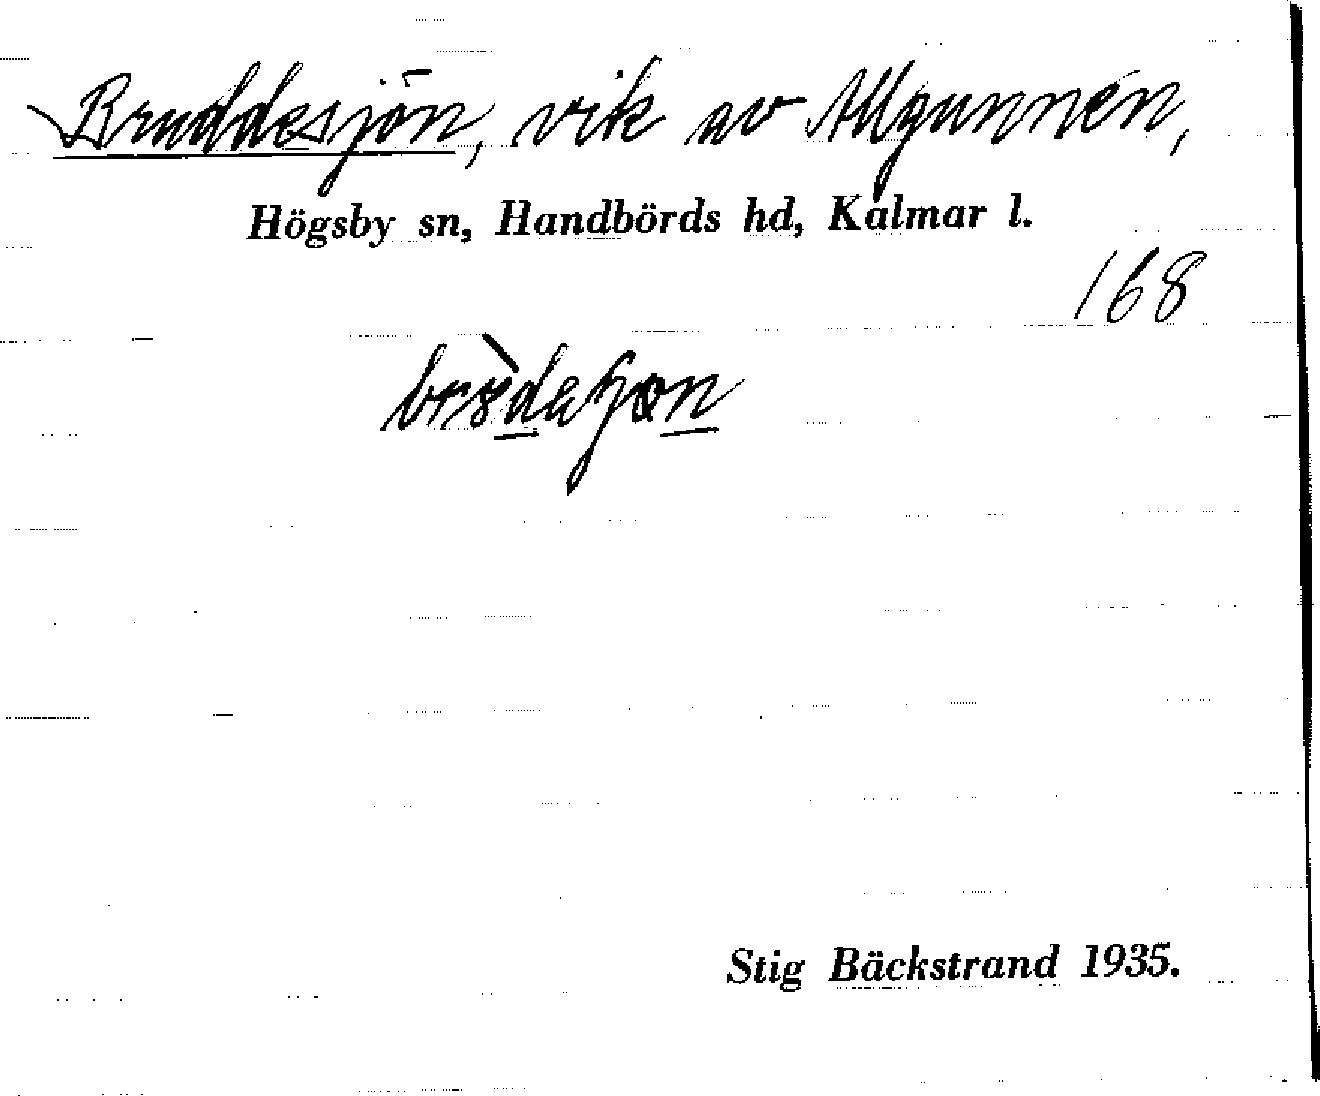 Bruddesjön, vik av Allgunnen,
Högsby sn, Handbörds hd, Kalmar l.
168
Stig Bäckstrand 1935.